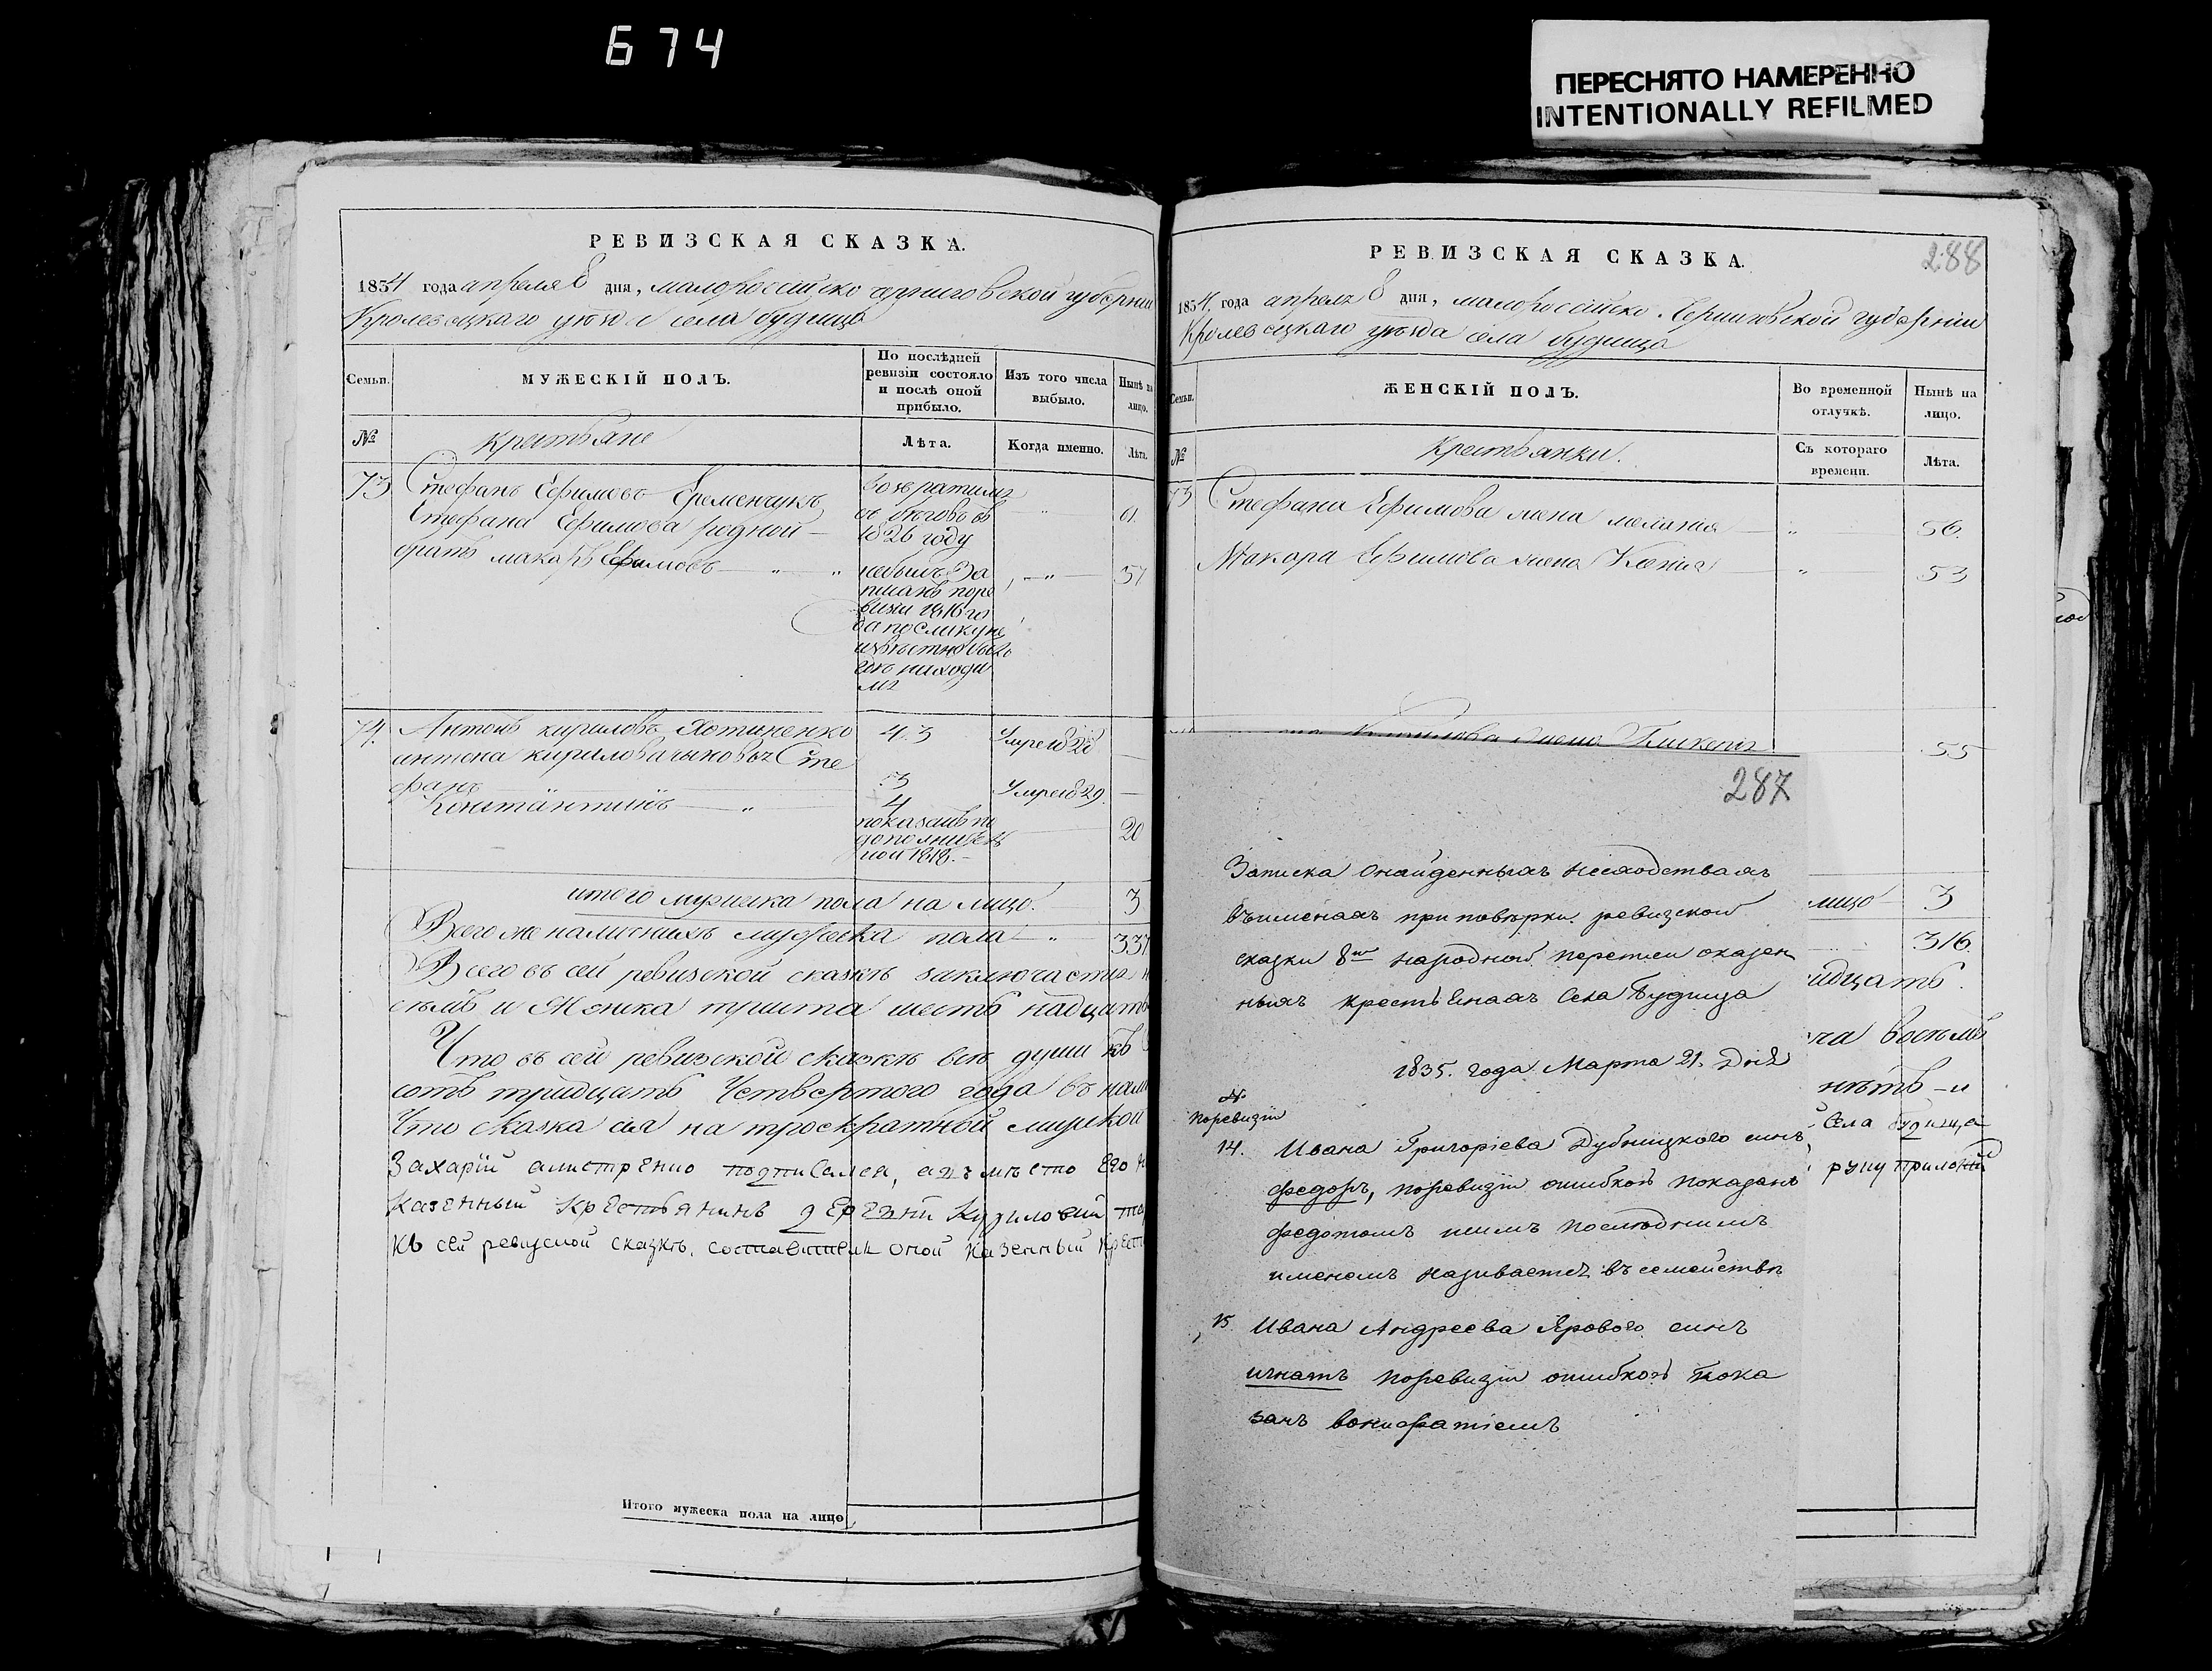 674
ПЕРЕСНЯТО НАМЕРЕННО
INTENTIONALLY REFILMED
РЕВИЗСКАЯ СКАЗКА.
1834 года апреля 8 дня, малороссійско черниговской губерніи
Кролевецкаго уезда села будища
Семьи.
МУЖЕСКІЙ ПОЛЪ.
По послѣдней
ревизіи состояло
и послѣ оной
прибыло.
Изъ того числа
выбыло.
Нынѣ на
лицо.
№
крестьяне
Лѣта.
Когда именно.
Лѣта.
73 Стефанъ Ефимовъ Еременчукъ
возвратился
съ бегов въ
1826 году
61.
Стефана Ефимова родной
братъ макаръ Ефимовъ
небылъ за
писанъ по ре
визіи 1816 го
да поелику не
извѣстно
находи
лся
57
74. Антонъ кириловъ 43 Умре 828
антона кирилова сыновья Сте
фанъ 3 Умре 829.
Константинъ " 4
показанъ по
дополнитель
ной 1818.
20
итого мужеска пола на лицо. 3
Всего же наличнихъ мужеска пола " 337
Всего въ сей ревизской сказкѣ заключается
семь и Женска триста шесть надцать
Что въ сей ревизской сказкѣ всѣ души
сотъ тридцать Четвертого года въ
Что сказка сія на троекратной мирской
Захарій подписался, а вмѣсто его
Казенный Крестьянинъ деревни
Къ сей ревизской сказкѣ. составитель оной Казенный Крест
Итого мужеска пола на лицо
РЕВИЗСКАЯ СКАЗКА.
288
1834 года апреля 8 дня, малороссійско Черниговской губерніи
Кролевецкаго уезда села будища
Семьи.
ЖЕНСКІЙ ПОЛЪ.
Во временной
отлучкѣ.
Нынѣ на
лицо.
№
Крестьянки.
Съ котораго
времени.
Лѣта.
73 Стефана Ефимова жена меланія " 56.
Макара Ефимова жена Ксенія " 53
Кирилова жена Гликерія 55
лицо 3
316.
идцать.
ча восемь
нѣтъ - и
Села будища
руку приложилъ
287
Записка онайденныхъ несходствахъ
въименахъ при повѣрки ревизской
сказки 8й народной переписи казен
ныхъ крестьянахъ Села Будища
1835. года Марта 21. Дня
№
поревизіи
14. Ивана Григоріева Дубницкого синъ
федоръ, поревизіи ошибкою показанъ
федотомъ коимъ последнимъ
именемъ називается въ семействѣ
15. Ивана Андреева Ярового синъ
игнатъ поревизіи ошибкою пока
занъ вонифатіемъ